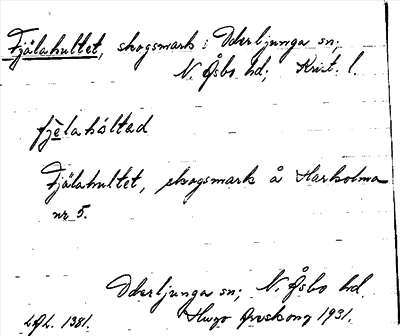 Fjälahultet, skogsmark i Örkelljunga sn;
N. Åsbo hd; Krist. l.
fjęlahöltad
Fjälahultet, skogsmark å Harholma
nr 5.
Örkelljunga sn; N. Åsbo hd.
L.A.L. 1381. Hugo Areskoug 1931.